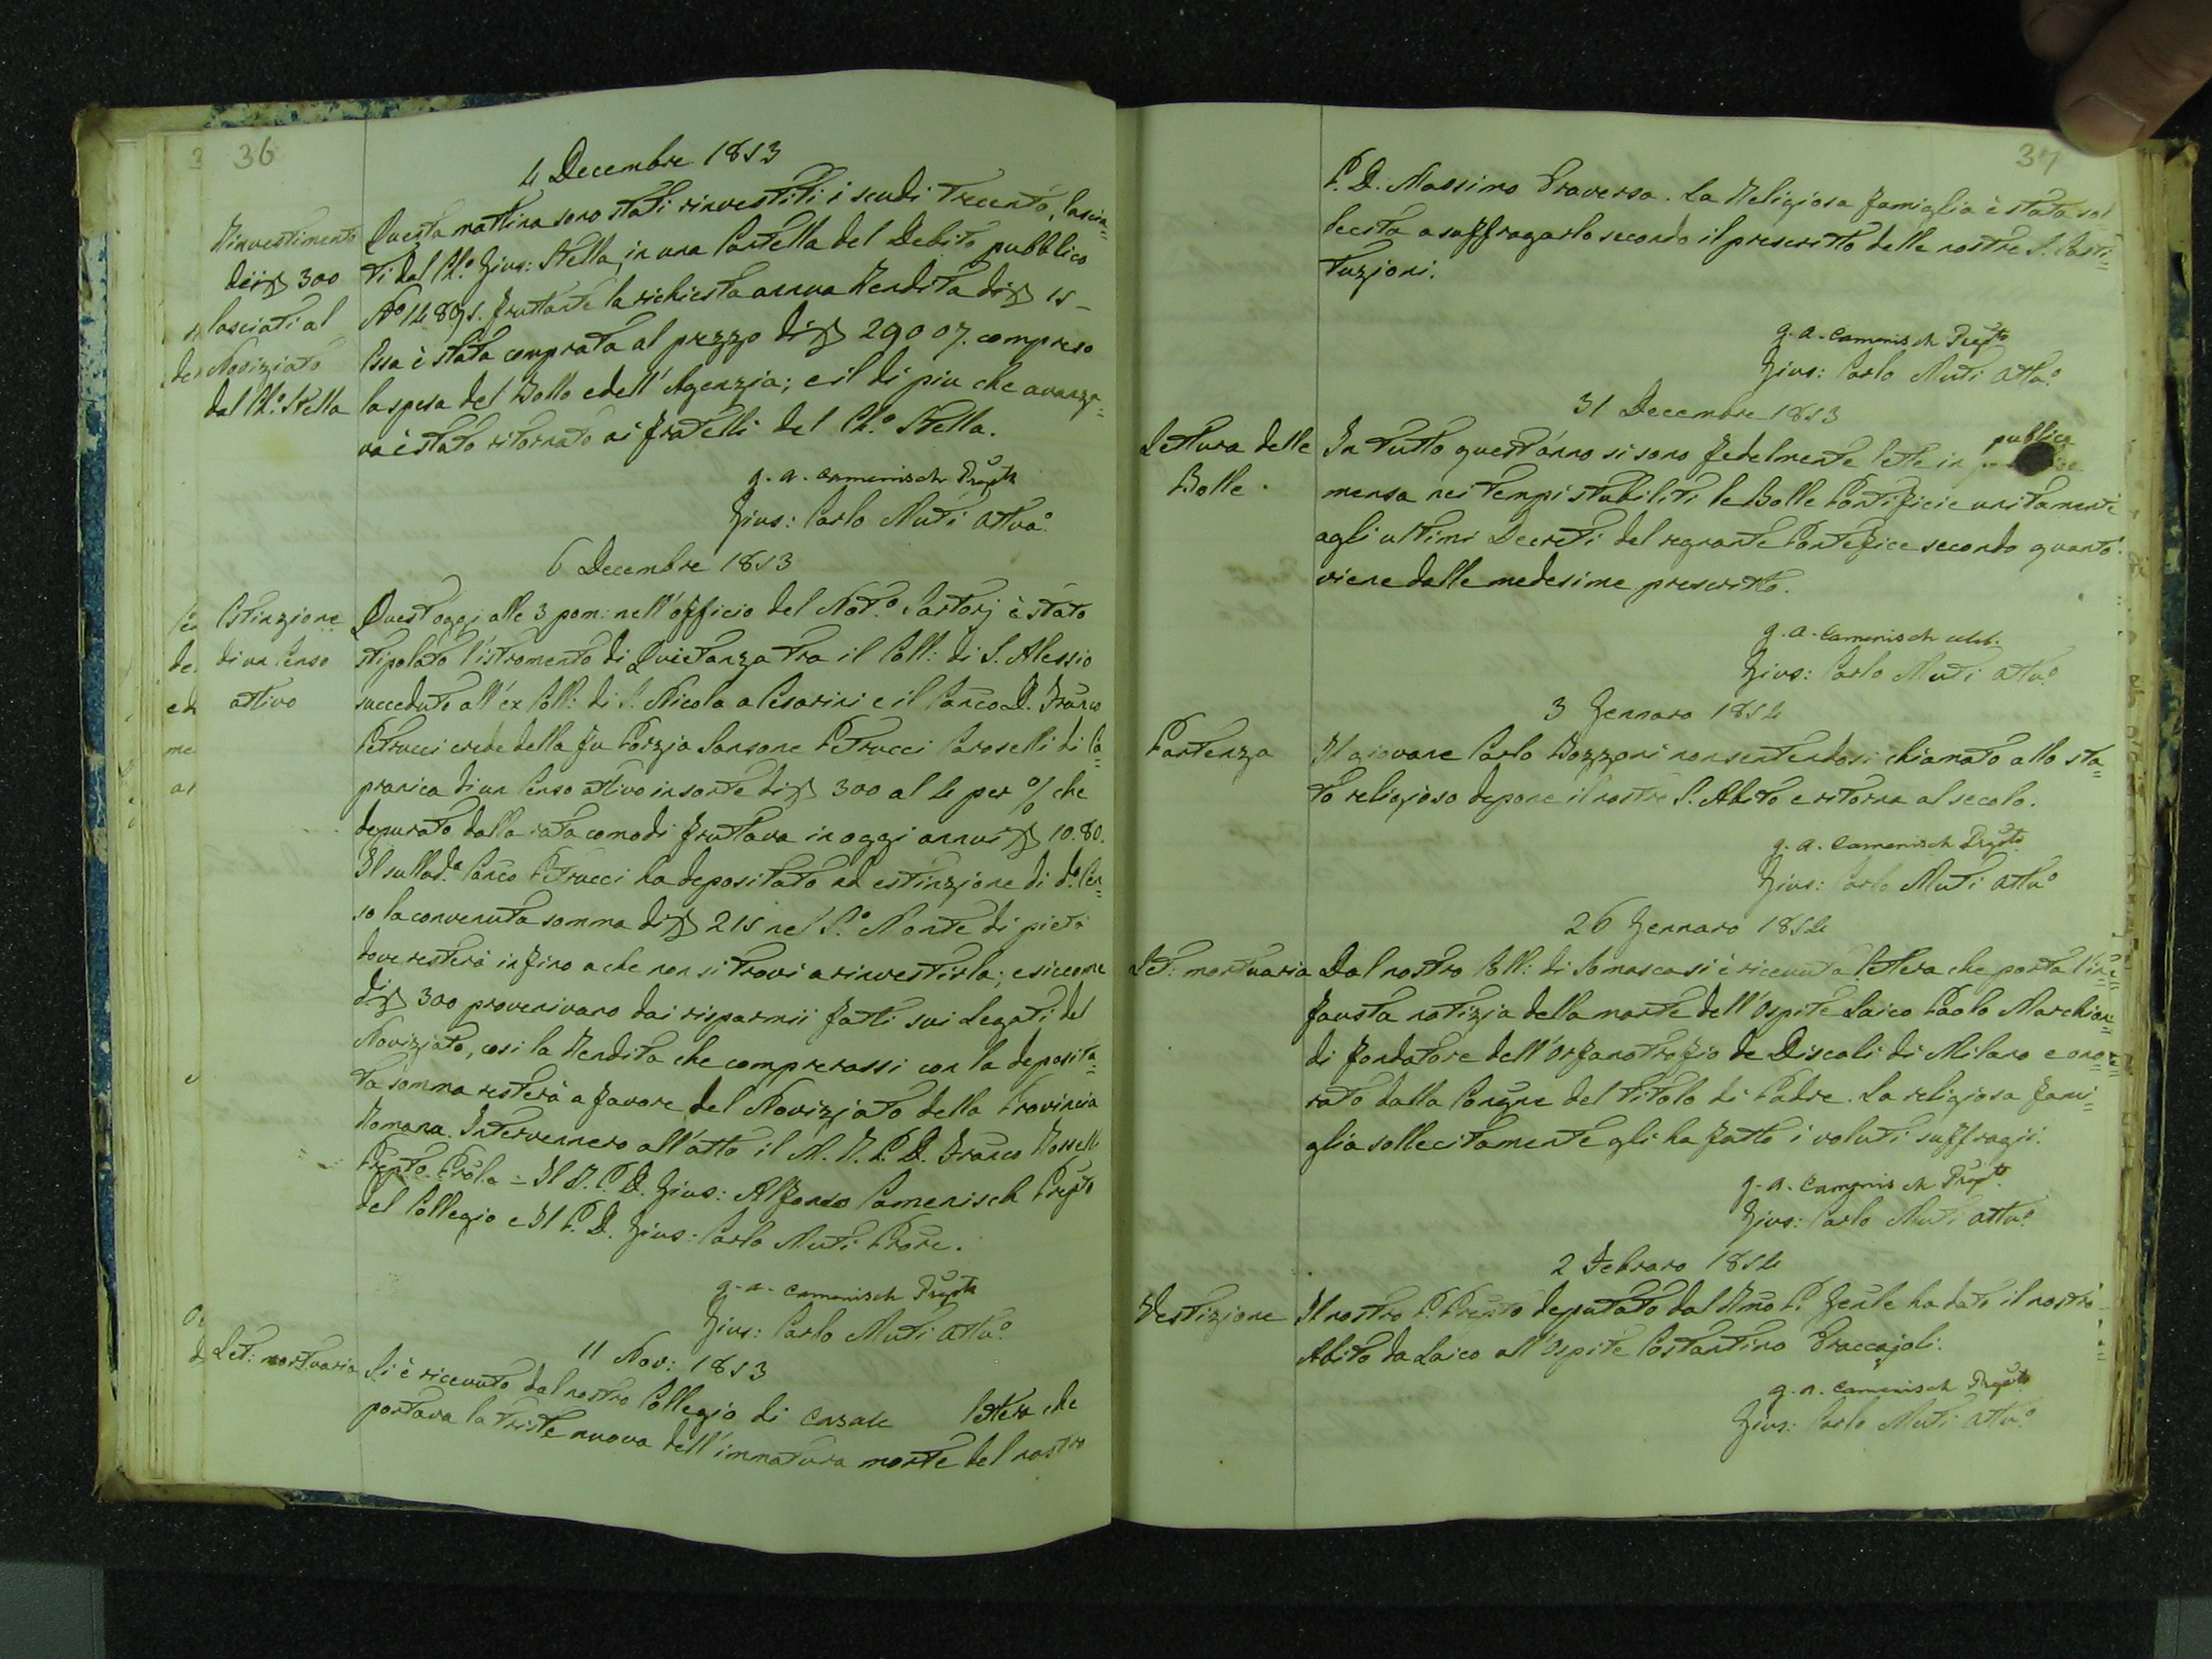 36
4 Decembre 1853
Rinvestimento
dei ∇ 300
lasciati al
Noviziato
dal Ch.º Stella
Questa mattina sono stati rinvestiti i scudi trecento, lascia=
ti dal Ch.º Gius: Stella, in una Cartella del Debito pubblico
Nº 14895. fruttante la richiesta annua Rendita di ∇ 15 –
Essa è stata comprata al prezzo di ∇ 290 07. compreso
la spesa del Bollo e dell' Agenzia; e il di piu che avanza=
va è stato ritornato ai fratelli del Ch.º Stella.
g. a. Camenisch Prepto
Gius: Carlo Muti Attuº
6 Decembre 1853
Estinzione
di un Censo
attivo
Quest'oggi alle 3 pom: nell'officio del Not.º Sartorj è stato
stipolato l'istromento di Quietanza tra il Coll: di S. Alessio
succeduto all'ex Coll: di S. Nicola a Cesarini e il Canco D. Franco
Petrucci erede della fu Porzia Sansone Petrucci Caroselli di Ca=
pranica di un Censo attivo in sorte di ∇ 300 al 4 per % che
depurato dalla rata comodi fruttava in oggi annui ∇ 10.80.
Il sullod.º Canco Petrucci ha depositato ad estinzione di d.º Cen=
so la convenuta somma di ∇ 215 nel S.º Monte di pietà
dove resterà infino a che non si trovi a rinvestirla; e siccome
di ∇ 300 provenivano dai risparmii fatti sui Legati del
Noviziato, cosi la Rendita che comprerassi con la deposita=
ta somma resterà a favore del Noviziato della Provincia
Romana. Intervennero all'atto il M. R. P. D. Franco Rosselli
Prepto Prõle = Il R. P. D. Gius: Alfonso Camenisch Prepto
del Collegio e Il P. D. Gius: Carlo Muti Prõre.
g. a. Camenisch Prepto
Gius: Carlo Muti Attuº
11 Nov: 1853
Let: mortuaria
Si è ricevuto dal nostro Collegio di Casale lettera che
portava la triste nuova dell'immatura morte del nostro
37
P. D. Massimo Traversa. La Religiosa famiglia è stata sol
lecita a suffragarlo secondo il prescritto delle nostre S. Costi=
tuzioni.
g. a. Camenisch Prepto
Gius: Carlo Muti Attuº
31 Decembre 1853
Lettura delle
Bolle.
In tutto quest'anno si sono fedelmente lette in pubblica
mensa nei tempi stabiliti le Bolle Pontificie unitamente
agli ultimi Decreti del regnante Pontefice secondo quanto
viene dalle medesime prescritto.
g. a. Camenisch
Gius: Carlo Muti Attuº
3 Gennaro 1854
Partenza
Il giovane Carlo Bozzoni non sentendosi chiamato allo sta=
to religioso depone il nostro S. Abito e ritorna al secolo.
g. a. Camenisch Prepto
Gius: Carlo Muti Attuº
26 Gennaro 1854
Let: mortuaria
Dal nostro Coll: di Somasca si è ricevuta lettera che porta l'in=
fausta notizia della morte dell'Ospite Laico Paolo Marchion=
di fondatore dell'Orfanotrofio de Discoli di Milano e ono=
rato dalla Congne del titolo di Padre. La religiosa fami=
glia sollecitamente gli ha fatto i voluti suffragii.
g. a. Camenisch Prepto
Gius: Carlo Muti Attuº
2 Febraro 1854
Vestizione
Il nostro P. Prepto deputato dal Rmo P. Genle ha dato il nostro
Abito da Laico all'Ospite Costantino Braccajoli.
g. a. Camenisch Prepto
Gius: Carlo Muti Attuº